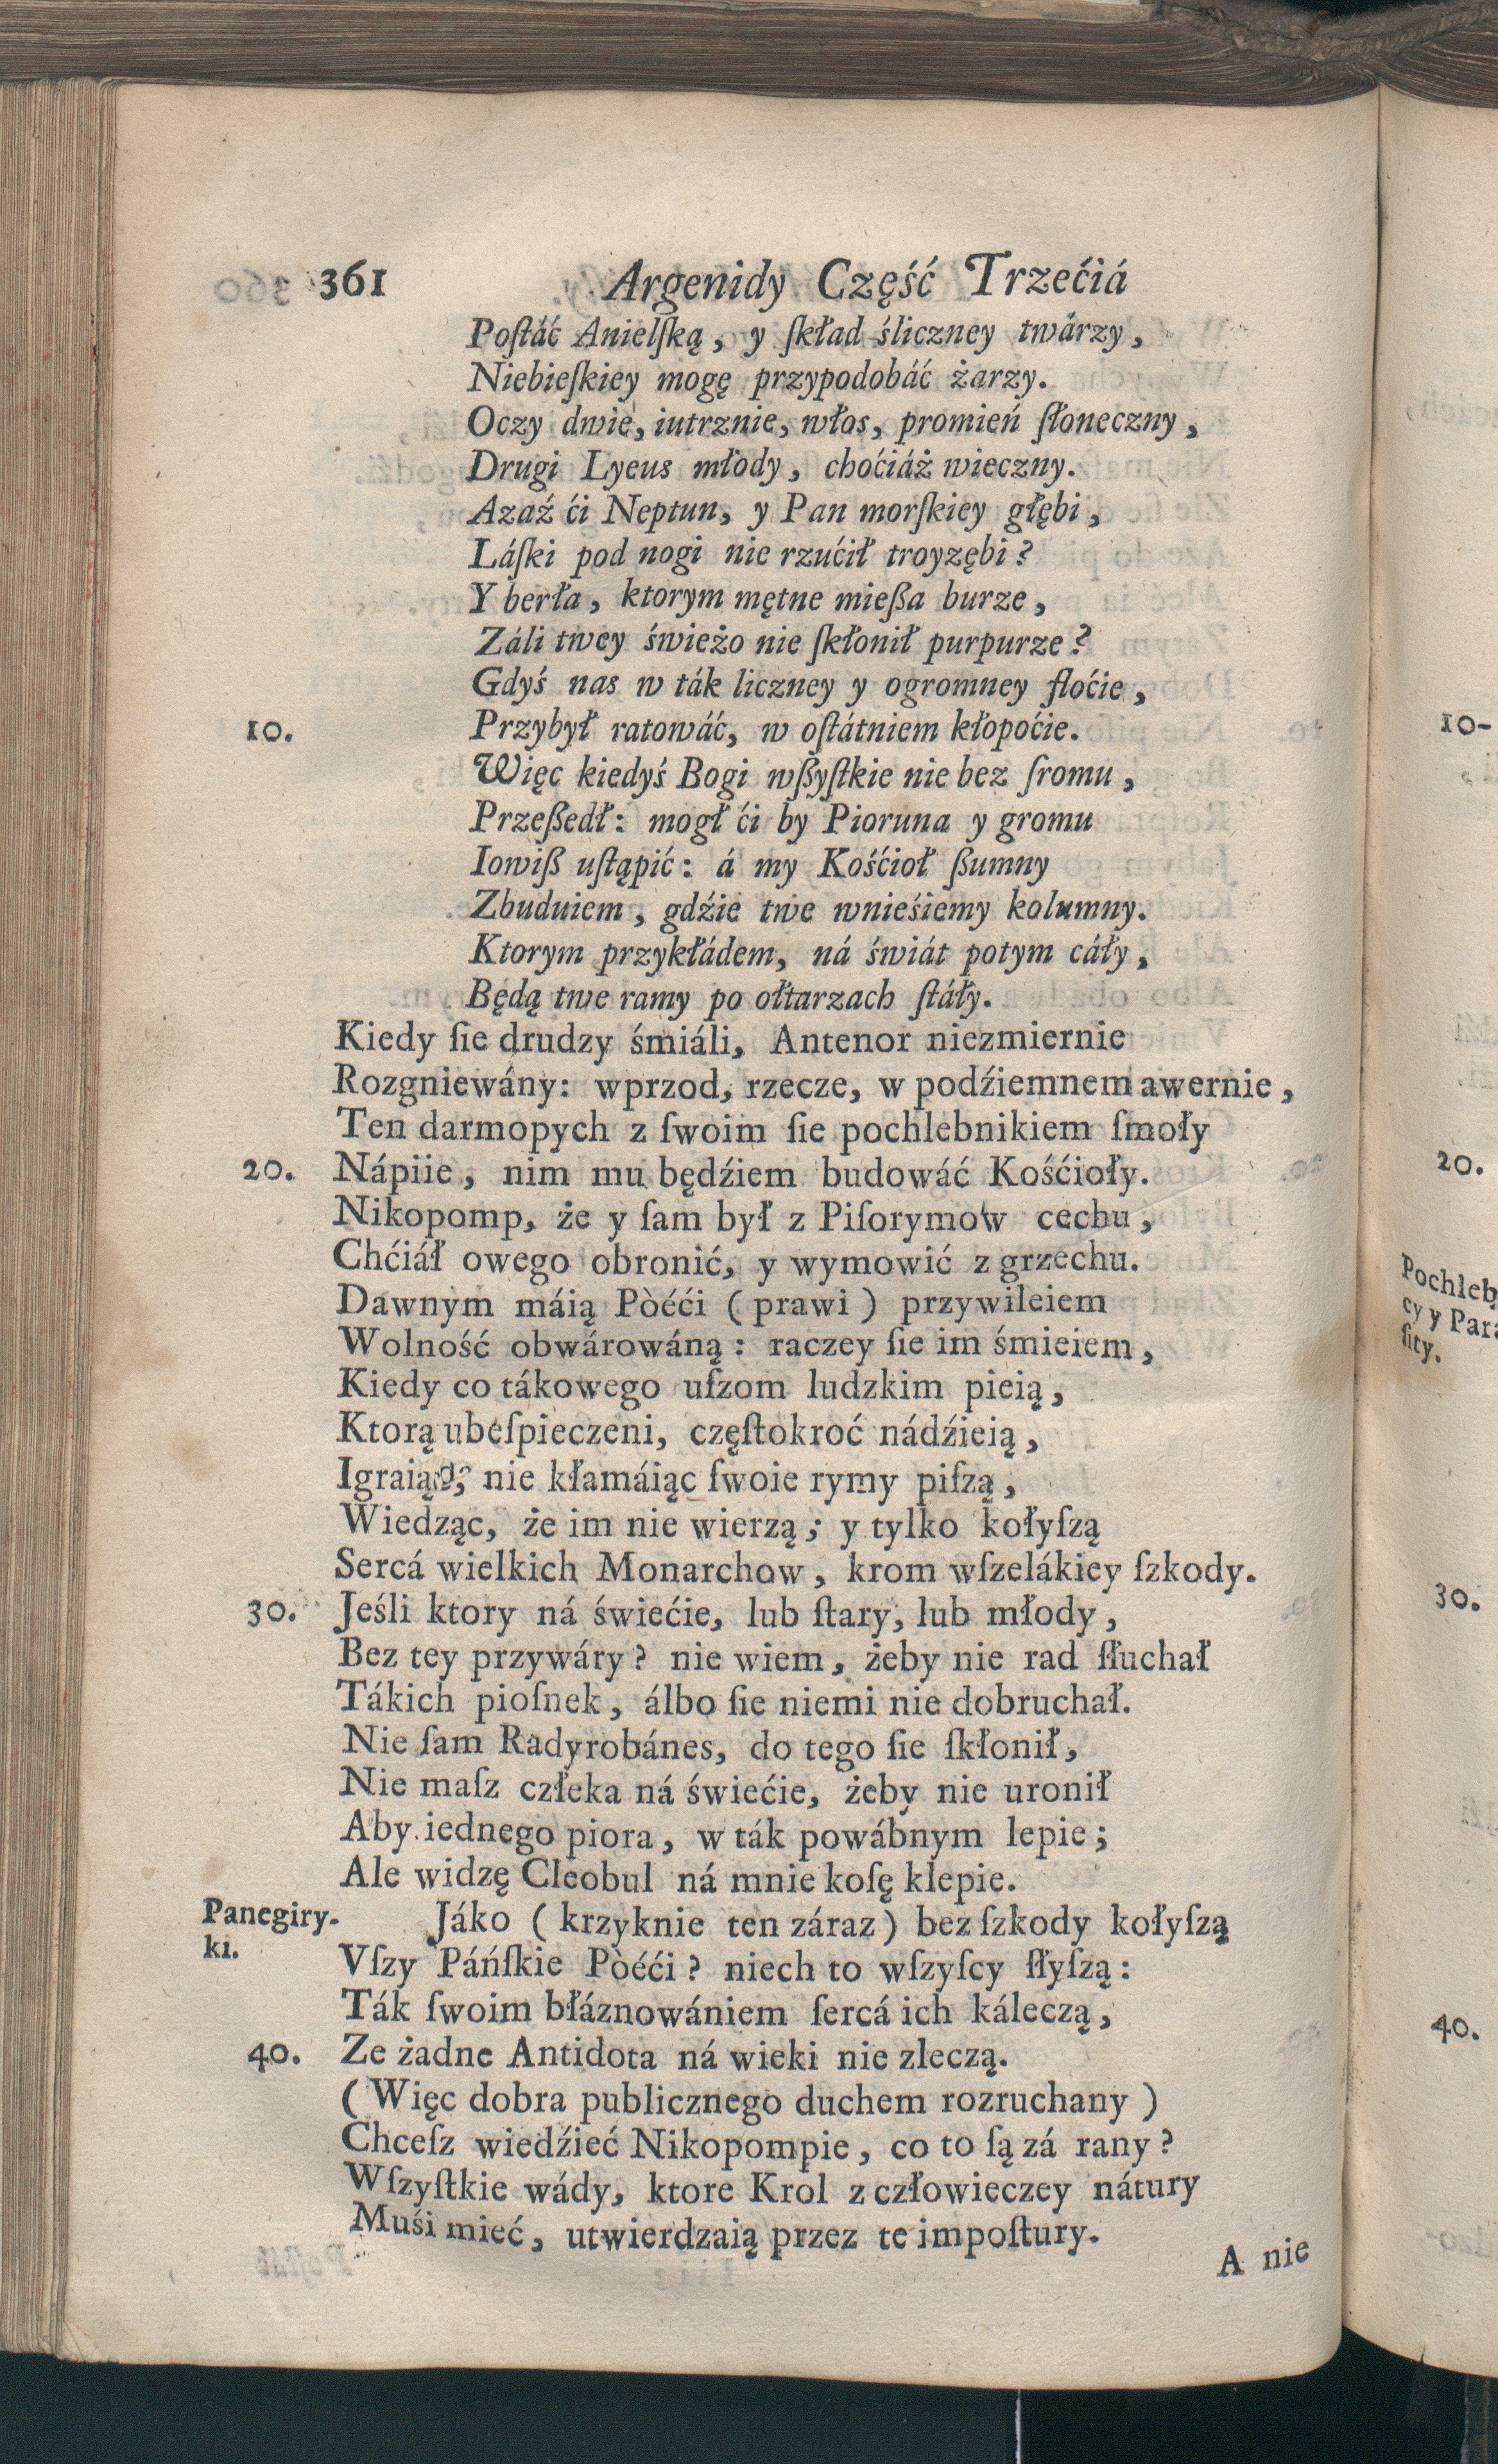 361 Argenidy Część Trzećiá
Poſtáć Anielſką, y ſkład śliczney twárzy,
Niebieſkiey mogę przypodobáć żarzy.
Oczy dwie, iutrznie, włos, promień ſłoneczny,
Drugi Lyeus młody, choćiáż wieczny.
Azaź ći Neptun, y Pan morſkiey głębi,
Láſki pod nogi nie rzućił troyzębi?
Y berła, ktorym mętne mießa burze,
Záli twey świeżo nie ſkłonił purpurze?
Gdyś nas w ták liczney y ogromney floćie,
10. Przybył ratowáć, w oſtátniem kłopoćie.
Więc kiedyś Bogi wßyſtkie nie bez ſromu,
Przeßedł: mogł ći by Pioruna y gromu
Iowiß uſtąpić: á my Kośćioł ßumny
Zbuduiem, gdźie twe wnieśiemy kolumny.
Ktorym przykłádem, ná świát potym cáły,
Będą twe ramy po ołtarzach ſtáły.
Kiedy ſie drudzy śmiáli, Antenor niezmiernie
Rozgniewány: wprzod, rzecze, w podźiemnem awernie,
Ten darmopych z ſwoim ſie pochlebnikiem ſmoły
20. Nápiie, nim mu będźiem budowáć Kośćioły.
Nikopomp, że y ſam był z Piſorymow cechu,
Chćiáł owego obronić, y wymowić z grzechu.
Dawnym máią Pòéći (prawi) przywileiem
Wolność obwárowáną: raczey ſie im śmieiem,
Kiedy co tákowego uſzom ludzkim pieią,
Ktorą ubeſpieczeni, częſtokroć nádźieią,
Igraiąc, nie kłamáiąc ſwoie rymy piſzą,
Wiedząc, że im nie wierzą; y tylko kołyſzą
Sercá wielkich Monarchow, krom wſzelákiey ſzkody.
30. Jeśli ktory ná świećie, lub ſtary, lub młody,
Bez tey przywáry? nie wiem, żeby nie rad ſłuchał
Tákich pioſnek, álbo ſie niemi nie dobruchał.
Nie ſam Radyrobánes, do tego ſie ſkłonił,
Nie maſz człeka ná świećie, żeby nie uronił
Aby iednego piora, w ták powábnym lepie;
Ale widzę Cleobul ná mnie koſę klepie.
Panegiry-
ki.
Jáko (krzyknie ten záraz) bez ſzkody kołyſzą
Vſzy Páńſkie Pòéći? niech to wſzyſcy ſłyſzą:
Ták ſwoim błáznowániem ſercá ich káleczą,
40. Ze żadne Antidota ná wieki nie zleczą.
(Więc dobra publicznego duchem rozruchany)
Chceſz wiedźieć Nikopompie, co to ſą zá rany?
Wſzyſtkie wády, ktore Krol z człowieczey nátury
Muśi mieć, utwierdzaią przez te impoſtury.
A nie
10-
20.
Pochleb
cy y Para
ſity.
30.
40.